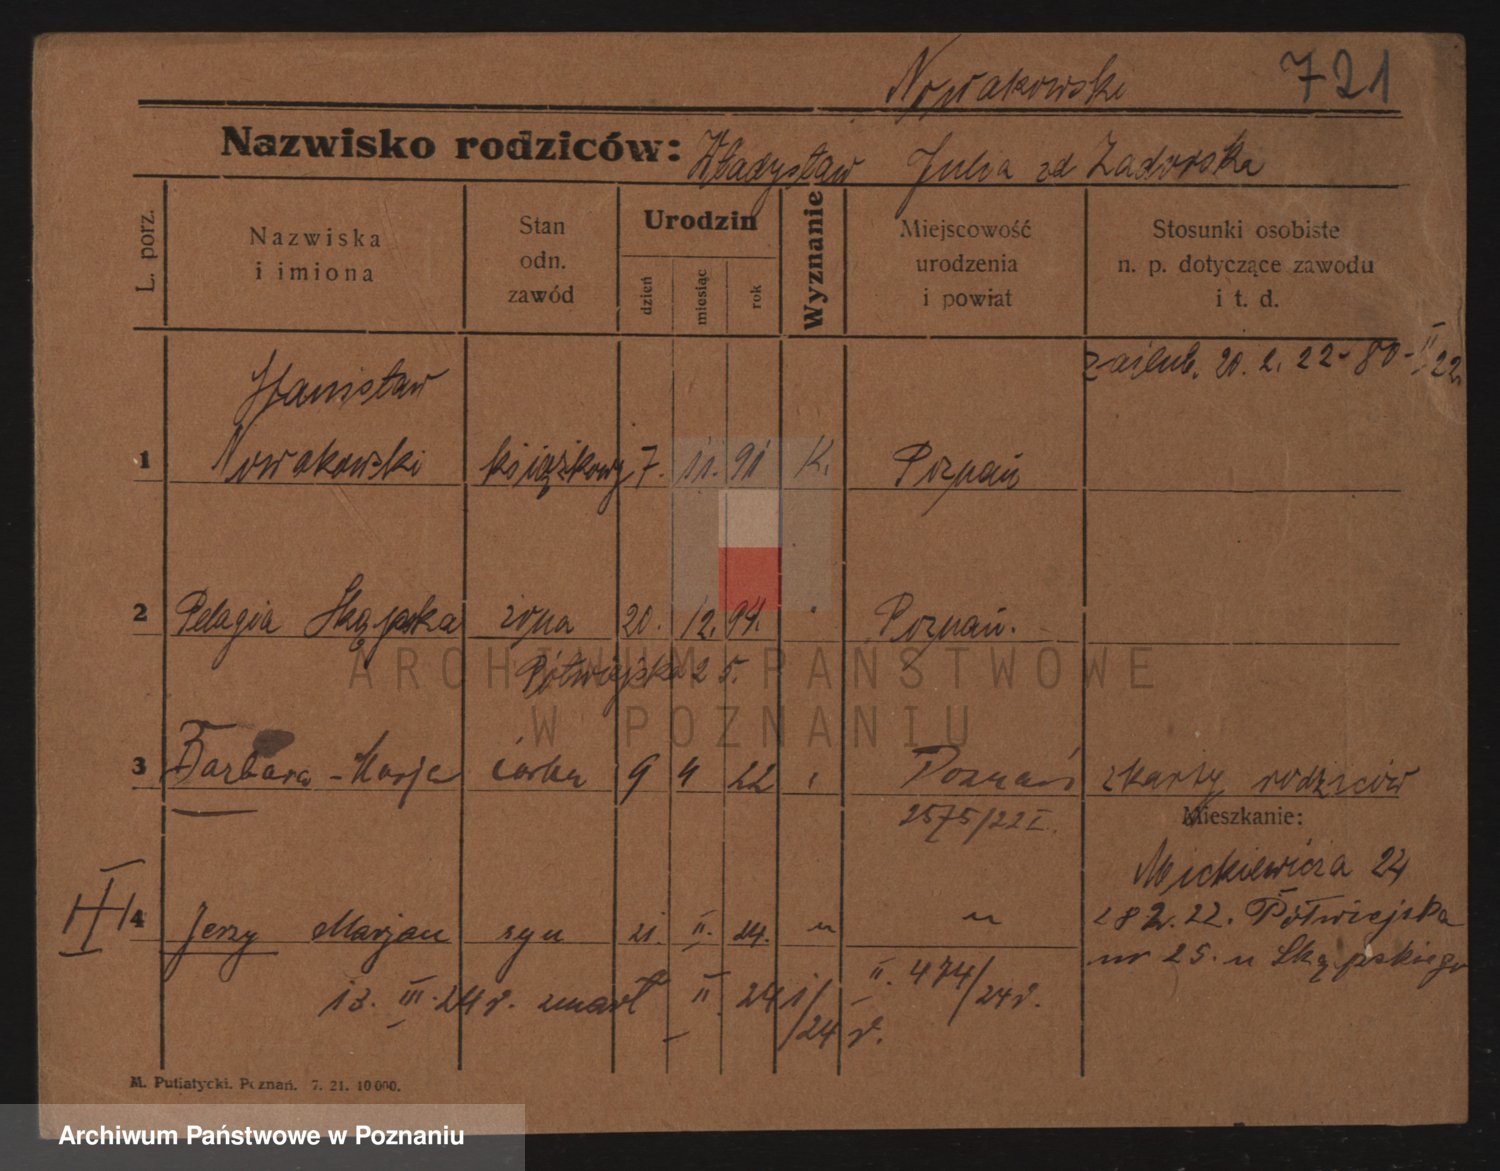 Nowakowski 721
Nazwisko rodziców: Władysław Julia zd Zadorska
L. porz.
Nazwiska
i imiona
Stan
odn.
zawód
Urodzin
dzień
miesiąc
rok
Wyznanie
Miejscowość
urodzenia
i powiat
Stosunki osobiste
n. p. dotyczące zawodu
i t. d.
zaślub. 20. 2. 22 - 80 - II 22
Stanisław
1 Nowakowski książkowy 7. 11. 91 K. Poznań
2 Pelagia Skąpska żona 20. 12. 94. " Poznań.
Półwiejska 25.
ARCHIWUM PAŃSTWOWE
W POZNANIU
3 Barbara - Marja córka 9 4 22 " Poznań z karty rodziców
2575/22 I.
Mieszkanie:
Mickiewicza 24
4 Jerzy Marjan syn 21. II. 24. " "
28 2. 22. Półwiejska
nr 25. u Skąpskiego
13. III. 24 r. zmarł II 241/24 r.
II. 474/24 r.
M. Putiatycki. Poznań. 7. 21. 10 000.
Archiwum Państwowe w Poznaniu